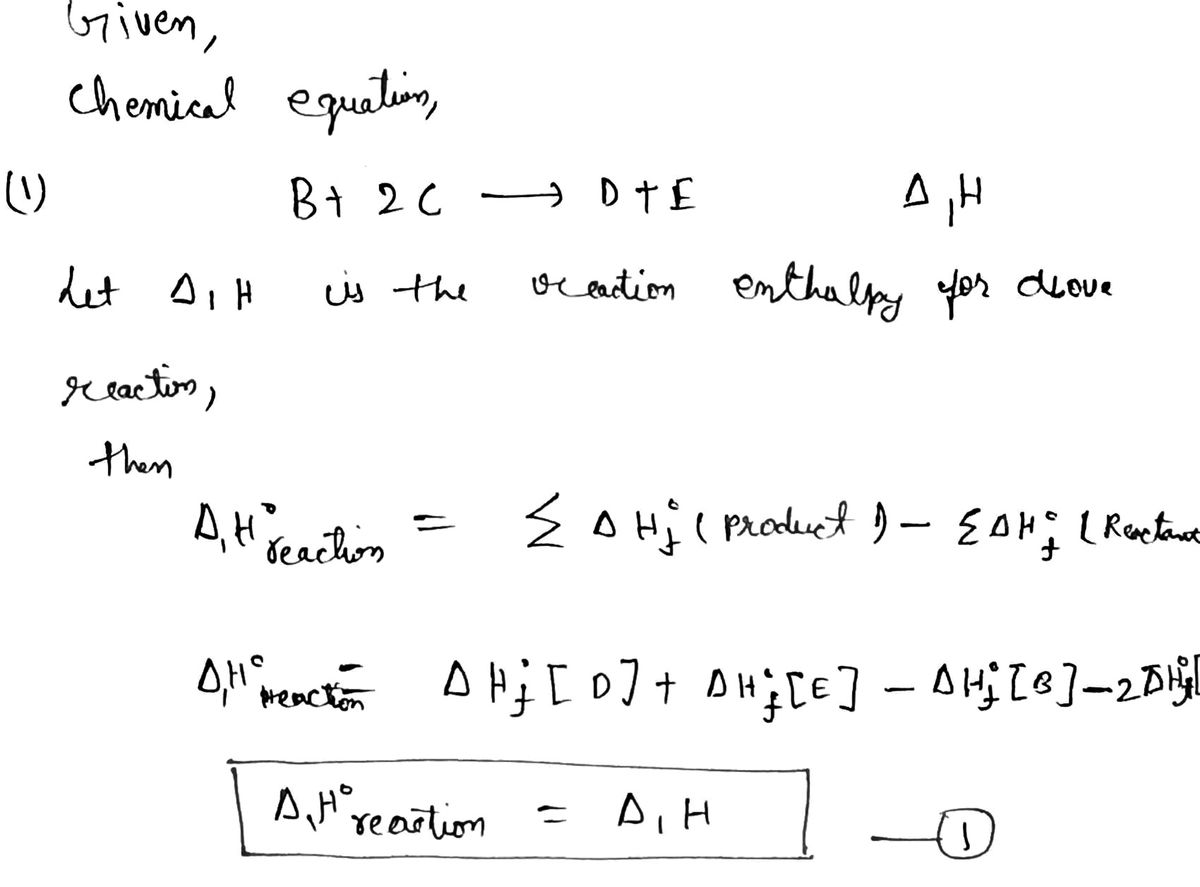 Given,
Chemical equation,
(1) B + 2C ⟶ D + E Δ₁H
Let Δ₁H is the reaction enthalpy for above
reaction,
then
Δ₁H°reaction = Σ ΔH°f (product) – ΣΔH°f (Reactant
Δ₁H°reaction = ΔH°f [D] + ΔH°f [E] – ΔH°f [B] – 2ΔH°f [
Δ₁H°reaction = Δ₁H —①